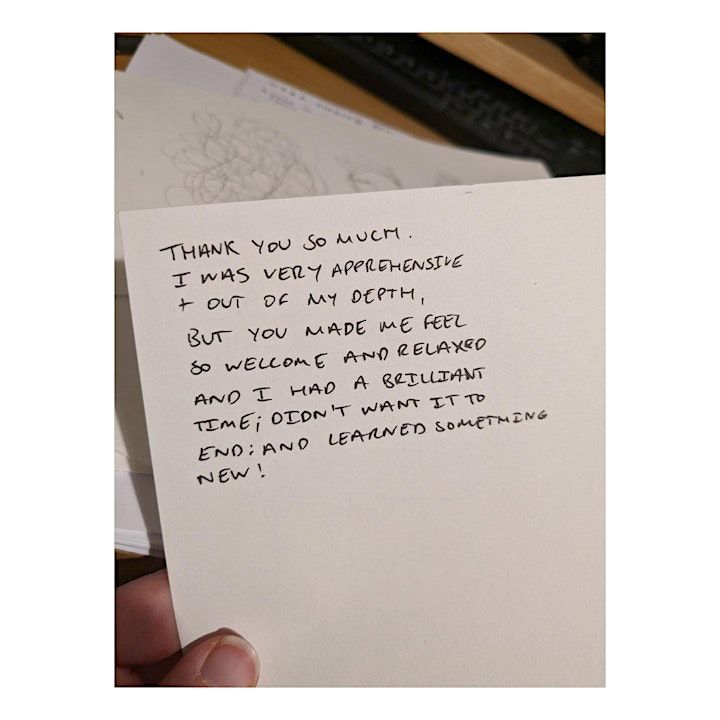 THANK YOU SO MUCH.
I WAS VERY APPREHENSIVE
+ OUT OF MY DEPTH,
BUT YOU MADE ME FEEL
SO WELCOME AND RELAXED
AND I HAD A BRILLIANT
TIME; DIDN'T WANT IT TO
END; AND LEARNED SOMETHING
NEW!